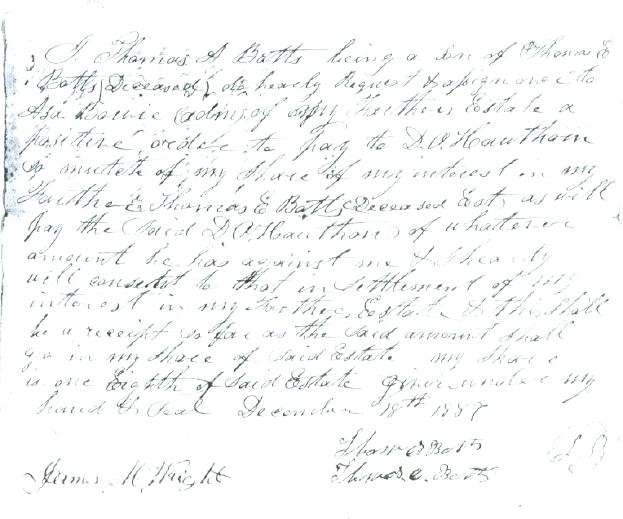 I Thomas A Batts being a Son of Thomas E
Batts (Deceased) do hearby Request & assign once to
Asa Bowie (admr) of my Farther Estate a
positive order to pay to D.O. Hawthorn
So mutch of my Share of my interest in my
Farther Thomas E Batts (Deceased Est) as will
pay the (said D O. Hawthorn) of whatever
amount he has against me & I hearby
will consent to that in Settlement of my
interest in my Farthers Estate & this Shall
be a receipt So far as the Said amount Shall
go in my Share of Said Estate my Share
is one Eighth of Said Estate given under my
hand & Seal December 18th 1857
Thomas Batts
Thomas Batts
James M. Wright